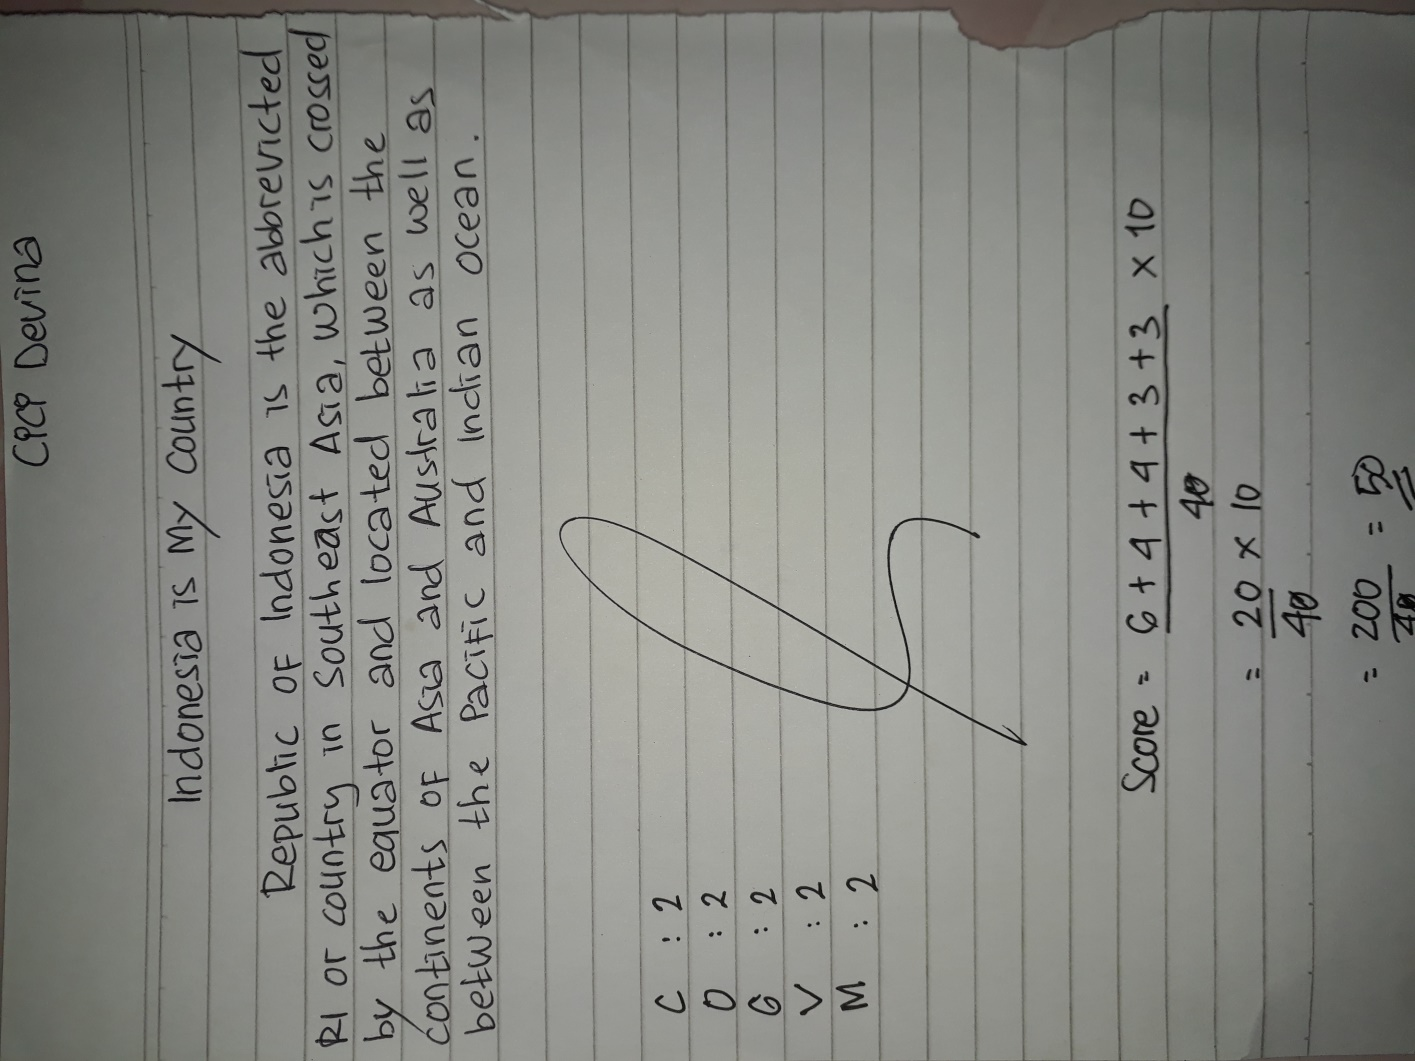 Cici Devina
Indonesia is My Country
Republic of Indonesia is the abbrevicted
RI or country in Southeast Asia, which is crossed
by the equator and located between the
continents of Asia and Australia as well as
between the Pacific and Indian Ocean.
C : 2
O : 2
G : 2
V : 2
M : 2
Score = 6 + 4 + 4 + 3 + 3 x 10
40
= 20 x 10
40
= 200 = 50
40